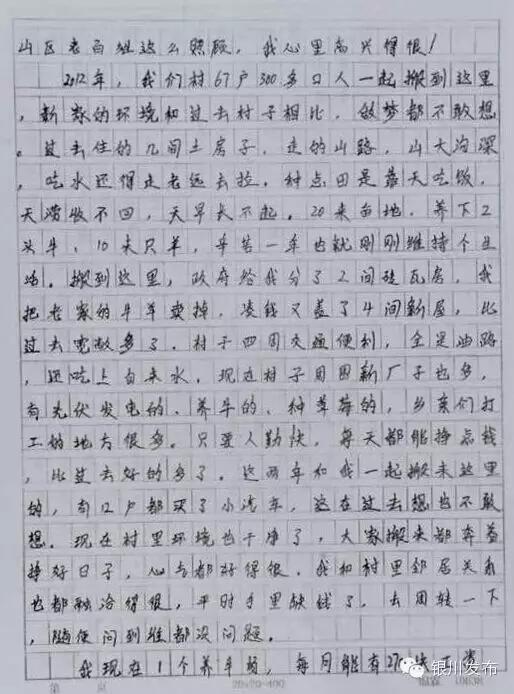 山区老百姓这么照顾，我心里高兴得很！
2012年，我们村67户300多口人一起搬到这里
，新家的环境和过去村子相比，做梦都不敢想
。过去住的几间土房子，走的山路，山大沟深
，吃水还得走老远去拉。种点田是靠天吃饭，
天涝收不回，天旱长不起。20来亩地，养下2
头牛，10来只羊，辛苦一年也就刚刚维持个生
活。搬到这里，政府给我分了2间砖瓦房，我
把老家的牛羊卖掉，凑钱又盖了4间新屋，比
过去宽敞多了。村子四周交通便利，全是油路
，还吃上自来水。现在村子周围新厂子也多，
有光伏发电的、养牛的、种草莓的，乡亲们打
工的地方很多。只要人勤快，每天都能挣点钱
，比过去好的多了。这两年和我一起搬来这里
的，有12户都买了小汽车，这在过去想也不敢
想。现在村里环境也干净了，大家搬来都奔着
挣好日子，心态都好得很。我和村里邻居关系
也都融洽得很，平时手里缺钱了，去周转一下
，随便问到谁都没问题。
我现在1个养牛场，每月能有27
第 页 20×20=400
银川发布